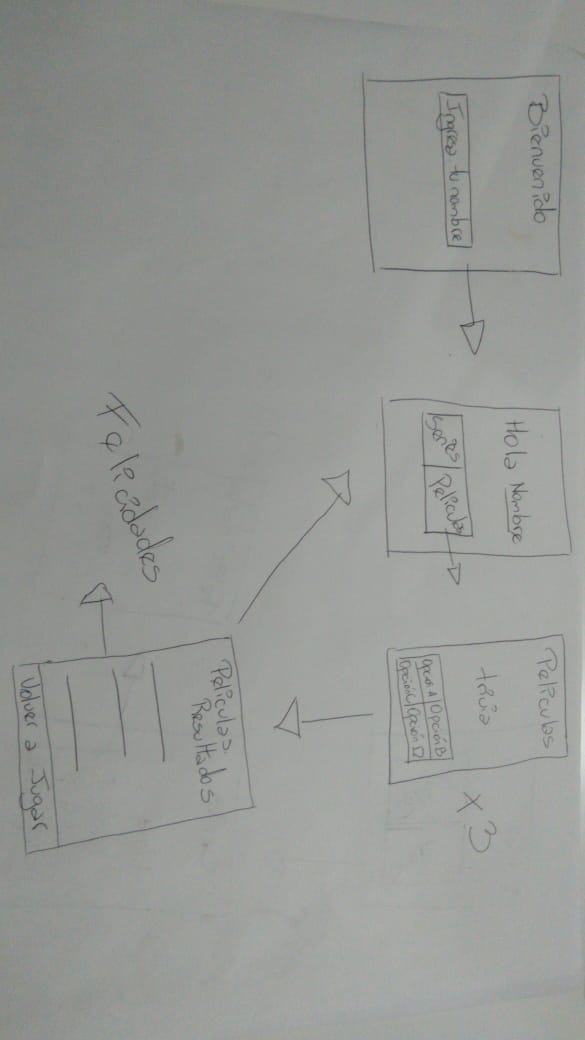 Bienvenido
Ingresa tu nombre
Hola Nombre
Series Peliculas
Peliculas
trivia
Opción A Opción B
Opción C Opción D
x3
Peliculas.
Resultados
Volver a Jugar
Felicidades